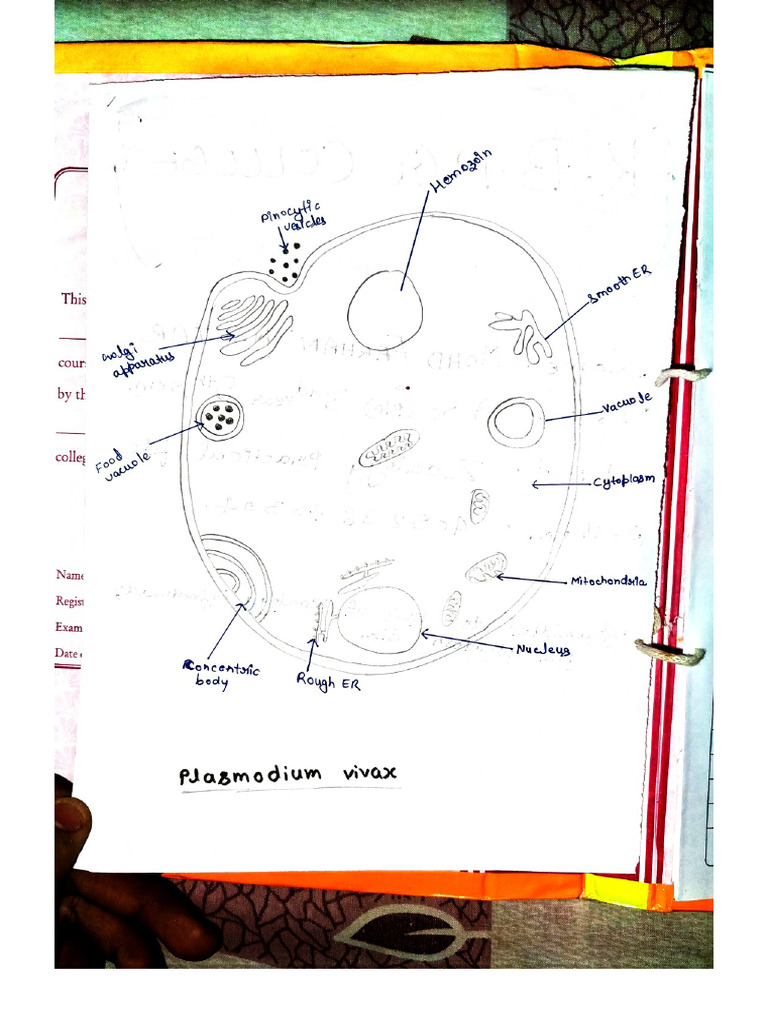 Hemozoin
Pinocytic
vesicles
Smooth ER
Golgi
apparatus
Vacuole
Food
vacuole
Cytoplasm
Mitochondria
Nucleus
Concentric
body
Rough ER
Plasmodium vivax
This
cour
by th
colleg
Name
Regist
Exam
Date